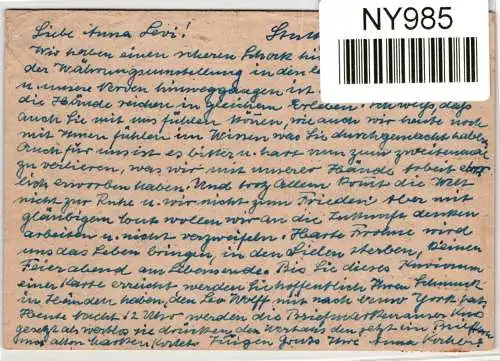 Liebe Anna Levi! Stutt
NY985
Wir haben einen schweren Schock hin
der Währungsumstellung in den le
u. unsere Köpfen hinweggegangen ist
die Hände reichen in gleichem Erleben. Ich weiß, daß
auch Sie mit uns fühlen können, wie auch wir heute noch
mit Ihnen fühlen im Wissen was Sie durchgemacht haben.
Auch für uns ist es bitter u. hart nun zum zweitenmale
zu verlieren, was wir mit unserer Hände Arbeit ehr
lich erworben haben. Und trotz allem kommt die Welt
nicht zur Ruhe u. wir nicht zum Frieden! Aber mit
gläubigem wollen wir an die Zukunft denken
arbeiten u. nicht verzweifeln. Harte Frohne wird
uns das Leben bringen, in den Sielen sterben, keinen
Feierabend am Lebensende. Bis Sie dieses Kuriosum
einer Karte erreicht werden Sie hoffentlich Ihren Schmuck
in Händen haben, den Leo Wolff mit nach New York
Heute Nacht 12 Uhr werden die Briefmarken
gesetzt als wertlos sie drücken den
alten Marken Grüße Ihre Anna